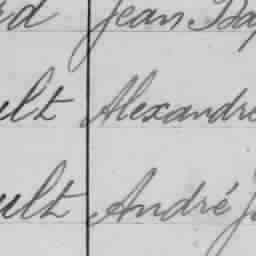 Jean Bap
ult Alexandre
ult André J